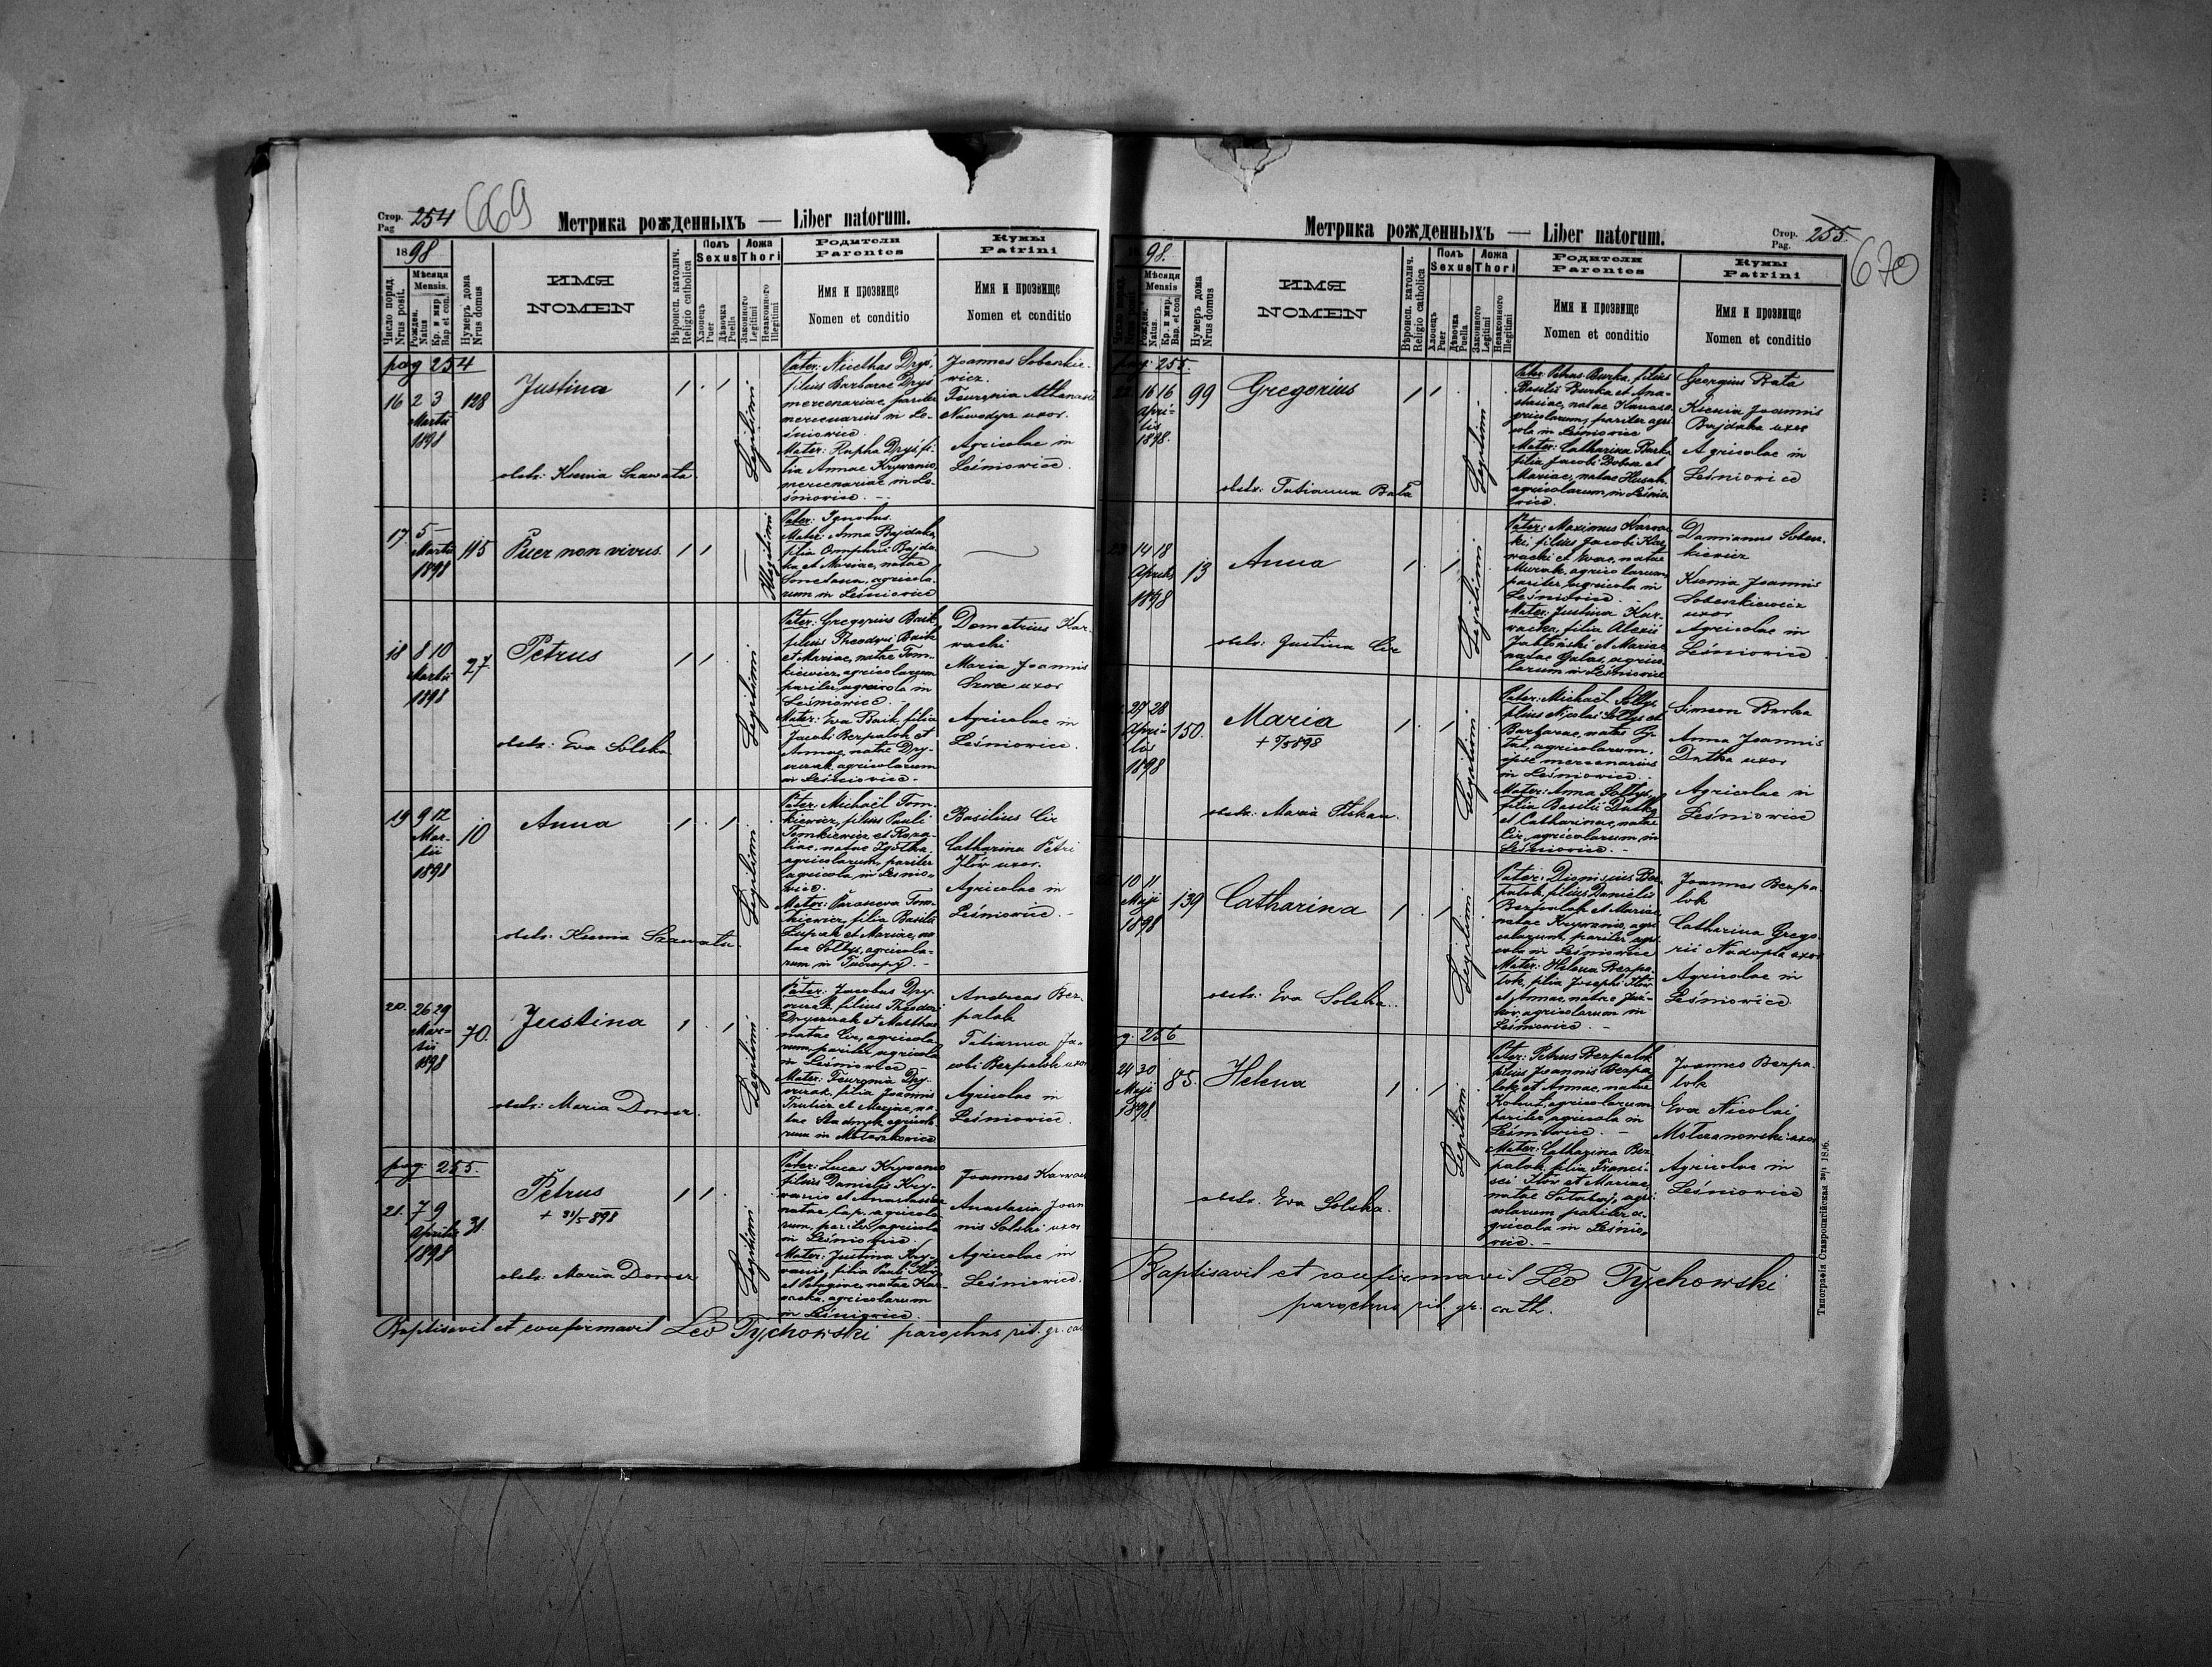 Стор. Pag 254 669
Метрика рожденныхъ — Liber natorum.
1898
Число поряд. Nrus posit.
Мѣсяця Mensis.
Рожден. Natus
Кр. и мvр. Bap et con.
Нумеръ дома Nrus domus
ИМЯ
NOMEN
Вѣроисп. католич. Religio catholica
Полъ Sexus
Хлопецъ Puer
Дѣвочка Puella
Ложа Thori
Законного Legitimi
Незаконного Illegitimi
Родители
Parentes
Имя и прозвище
Nomen et conditio
Кумы
Patrini
Имя и прозвище
Nomen et conditio
pag 254
16 2 3 128 Justina 1 1
Martii
1898
obstr: Ksenia Szawata
Legitimi
Pater: Nicethas Dryś,
filius Barbarae Dryś
mercenariae, pariter
mercenarius in Le-
śniowice.
Mater: Rapha Dryś, fi-
lia Annae Krywanio,
mercenariae in Le-
śniowice. –
Joannes Sobeskie-
wicz.
Feuronia Athanasii
uxor.
Agricolae in
Leśniowice.
17 5 115 Puer non vivus. 1 1
Martii
1898
Illegitimi
Pater: Ignotus.
Mater: Anna Bajdaka,
filia Omphrii Bajda-
ka et Mariae, natae
agricola-
rum in Leśniowice
18 8 10 27. Petrus 1 1
Martii
1898
obstr: Eva Solska
Legitimi
Pater: Gregorius Baik,
filius Theodori Baik
et Mariae, natae Tom-
kiewicz, agricolarum
pariter agricola in
Leśniowice.
Mater: Eva Baik, filia
Jacobi Bezpalok et
Annae, natae Dry-
agricolarum
in Leśniowice.
Demetrius Kar-
wacki
Maria Joannis
Szwec uxor
Agricolae in
Leśniowice.
19 9 12 10 Anna 1 1
Mar-
tii
1898
obstr: Ksenia Szawata.
Legitimi
Pater: Michaël Tom-
kiewicz, filius Pauli
Tomkiewicz et Roza-
liae, natae
agricolarum, pariter
agricola, in Leśnio-
wice.
Mater: Parasceva Tom-
kiewicz, filia Basilii
Łupak et Mariae, na-
tae Sołtys, agricola-
rum in Tuczapy. –
Basilius Cir
Catharina Petri
Ilów uxor.
Agricolae in
Leśniowice. –
20. 26 29 70. Justina 1 1
Mar-
tii
1898
obstr: Maria Dorosz.
Legitimi
Pater: Jacobus Dry-
filius Theodori
et Marthae
natae Cir, agricola-
rum, pariter agricola
in Leśniowice –
Mater: Feuronia Dry-
filia Joannis
et Mariae, na-
tae Stadnyk agricola-
rum in Mołoszkowice
Andreas Bez-
palok
Tatianna Ja-
cobi Bezpalok uxor
Agricolae in
Leśniowice.
pag. 255.
21. 7 9 31. Petrus 1 1
Aprilis
1898
+ 31/5 898
obstr: Maria Dorosz
Legitimi
Pater: Lucas Krywanio
filius Danielis Kry-
wanio et Anastasiae
natae Cap, agricola-
rum, pariter agricola
in Leśniowice.
Mater: Justina Kry-
wanio, filia Pauli
et Pelagiae, natae Kar-
wacka agricolarum
in Leśniowice.
Joannes
Anastasia Joan-
nis Solski uxor
Agricolae in
Leśniowice.
Baptisavit et confirmavit Leo Tychowski parochus rit. gr. cat
Метрика рожденныхъ — Liber natorum.
Стор. Pag. 255. 670
98.
Мѣсяця Mensis
Рожден. Natus.
Кр. и мvр. Bap. et con
Нумеръ дома Nrus domus
ИМЯ
NOMEN
Вѣроисп. католич. Religio catholica
Полъ Sexus
Хлопецъ Puer
Дѣвочка Puella
Ложа Thori
Законного Legitimi
Незаконного Illegitimi
Родители
Parentes
Имя и прозвище
Nomen et conditio
Кумы
Patrini
Имя и прозвище
Nomen et conditio
pag. 255.
22. 16 16 99 Gregorius 1 1
Apri-
lis
1898.
obstr: Tatianna Bata
Legitimi
Pater: Petrus Burka, filius
Basilii Burka et Ana-
stasiae, natae
agricolarum, pariter agri-
cola in Leśniowice
Mater: Catharina Burka
filia Jacobi Dobra et
Mariae, natae Husak,
agricolarum, in Leśnio-
wice.
Georgius Bata
Ksenia Joannis
Bajdaka uxor
Agricolae in
Leśniowice
23 14 18 13 Anna 1 1
Aprilis
1898
obstr: Justina Cir
Legitimi
Pater: Maximus Karwac-
ki filius Jacobi Kar-
wacki et Evae, natae
Muzak, agricolarum,
pariter agricola in
Leśniowice. –
Mater: Justina Kar-
wacka, filia Alexii
Jabłoński et Mariae
natae Galas, agrico-
larum in Leśniowice
Damianus Sobesz-
kiewicz
Ksenia Joannis
Sobeszkiewicz
uxor
Agricolae in
Leśniowice
27 28 150. Maria 1 1
Apri-
lis
1898
obstr: Maria
Legitimi
Pater: Michaël Sołtys,
filius Nicolai Sołtys et
Barbarae, natae
agricolarum,
ipse mercenarius
in Leśniowice.
Mater: Anna Sołtys,
filia Basilii Dutka
et Catharinae, natae
Cir, agricolarum in
Leśniowice. –
Simeon Burka
Anna Joannis
Dutka uxor
Agricolae in
Leśniowice
10 11 139 Catharina 1 1
Maji
1898
obstr: Eva Solska.
Legitimi
Pater: Dionisius Bez-
palok, filius Danielis
Bezpalok et Mariae,
natae Krywanio, agri-
colarum, pariter agri-
cola in Leśniowice
Mater: Helena Bezpa-
lok, filia Josephi Ilów
et Annae, natae
agricolarum in
Leśniowice. –
Joannes Bezpa-
lok
Catharina Grego-
rii Nadopta uxor
Agricolae in
Leśniowice
g. 256
24 30 85. Helena 1 1
Maji
1898.
obstr. Eva Solska.
Legitimi
Pater: Petrus Bezpalok
filius Joannis Bezpa-
lok et Annae, natae
Kohut, agricolarum
pariter agricola in
Leśniowice. –
Mater: Catharina Bez-
palok filia Franci-
sci Ilów et Mariae,
natae agri-
colarum pariter a-
gricola in Leśnio-
wice. –
Joannes Bezpa-
lok
Eva Nicolai
uxor
Agricolae in
Leśniowice
Baptisavit et confirmavit Leo Tychowski
parochus rit. gr. cath.
Типографія Ставропигійская